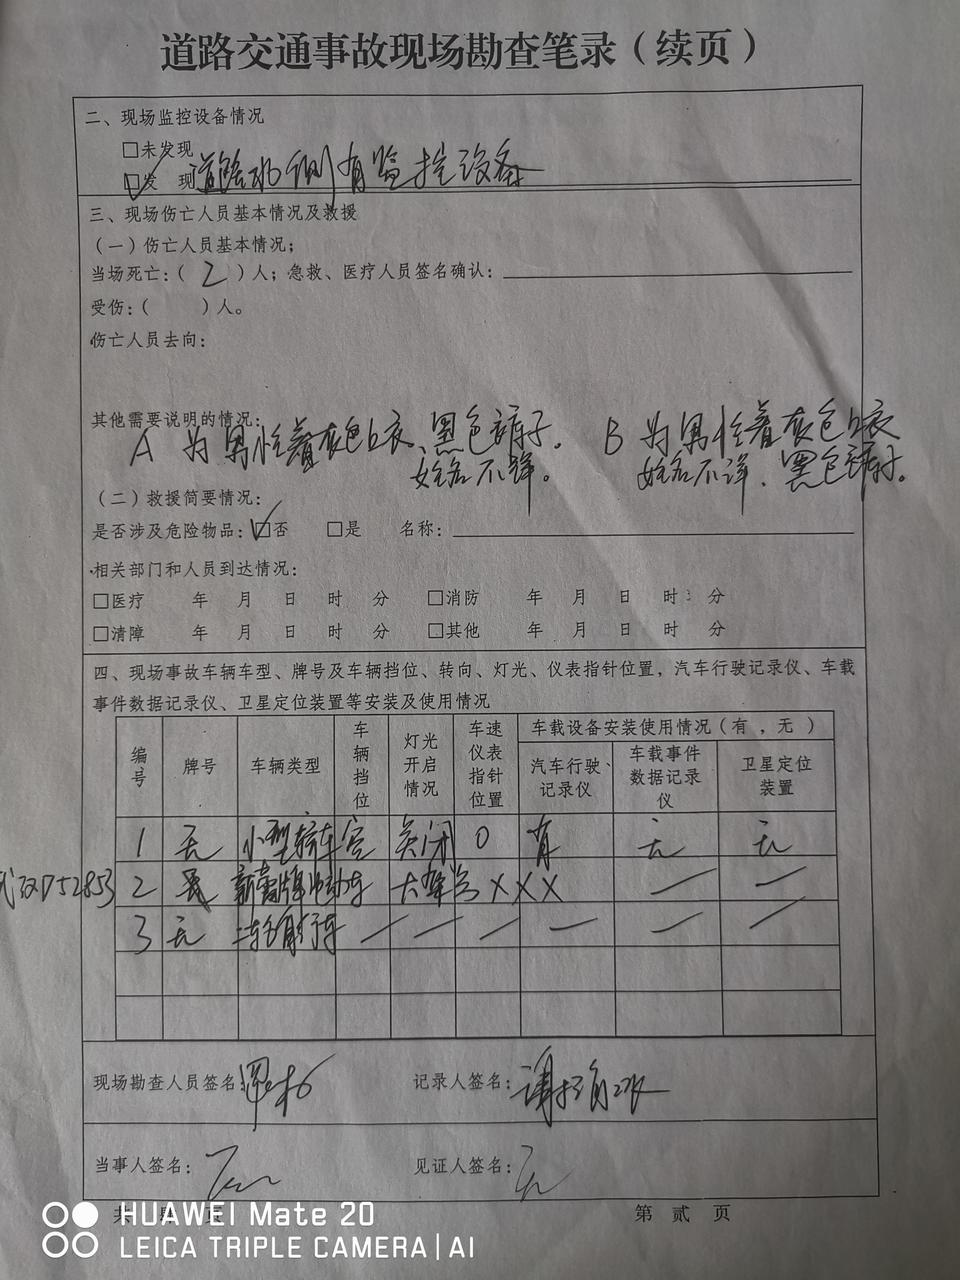 道路交通事故现场勘查笔录（续页）
二、现场监控设备情况
□未发现
☑发 现 道路 侧有监控设备
三、现场伤亡人员基本情况及救援
（一）伤亡人员基本情况；
当场死亡：（ 2 ）人；急救、医疗人员签名确认：
受伤：（ ）人。
伤亡人员去向：
其他需要说明的情况：
A 为男性着灰色上衣、黑色裤子。 B 为男性着灰色上衣
姓名不详。 姓名不详、黑色裤子。
（二）救援简要情况：
是否涉及危险物品：☑否 □是 名称：
相关部门和人员到达情况：
□医疗 年 月 日 时 分 □消防 年 月 日 时 分
□清障 年 月 日 时 分 □其他 年 月 日 时 分
四、现场事故车辆车型、牌号及车辆挡位、转向、灯光、仪表指针位置，汽车行驶记录仪、车载
事件数据记录仪、卫星定位装置等安装及使用情况
编号 牌号 车辆类型 车辆挡位 灯光开启情况 车速仪表指针位置 车载设备安装使用情况（有，无）
汽车行驶记录仪 车载事件数据记录仪 卫星定位装置
1 无 小型轿车 空 关闭 0 有 无 无
D52853 2 牌电动车 X X X — —
3 无 自行车 — — — — — —
现场勘查人员签名： 记录人签名：
当事人签名：无 见证人签名：无
共 肆 页 第 贰 页
HUAWEI Mate 20
LEICA TRIPLE CAMERA | AI